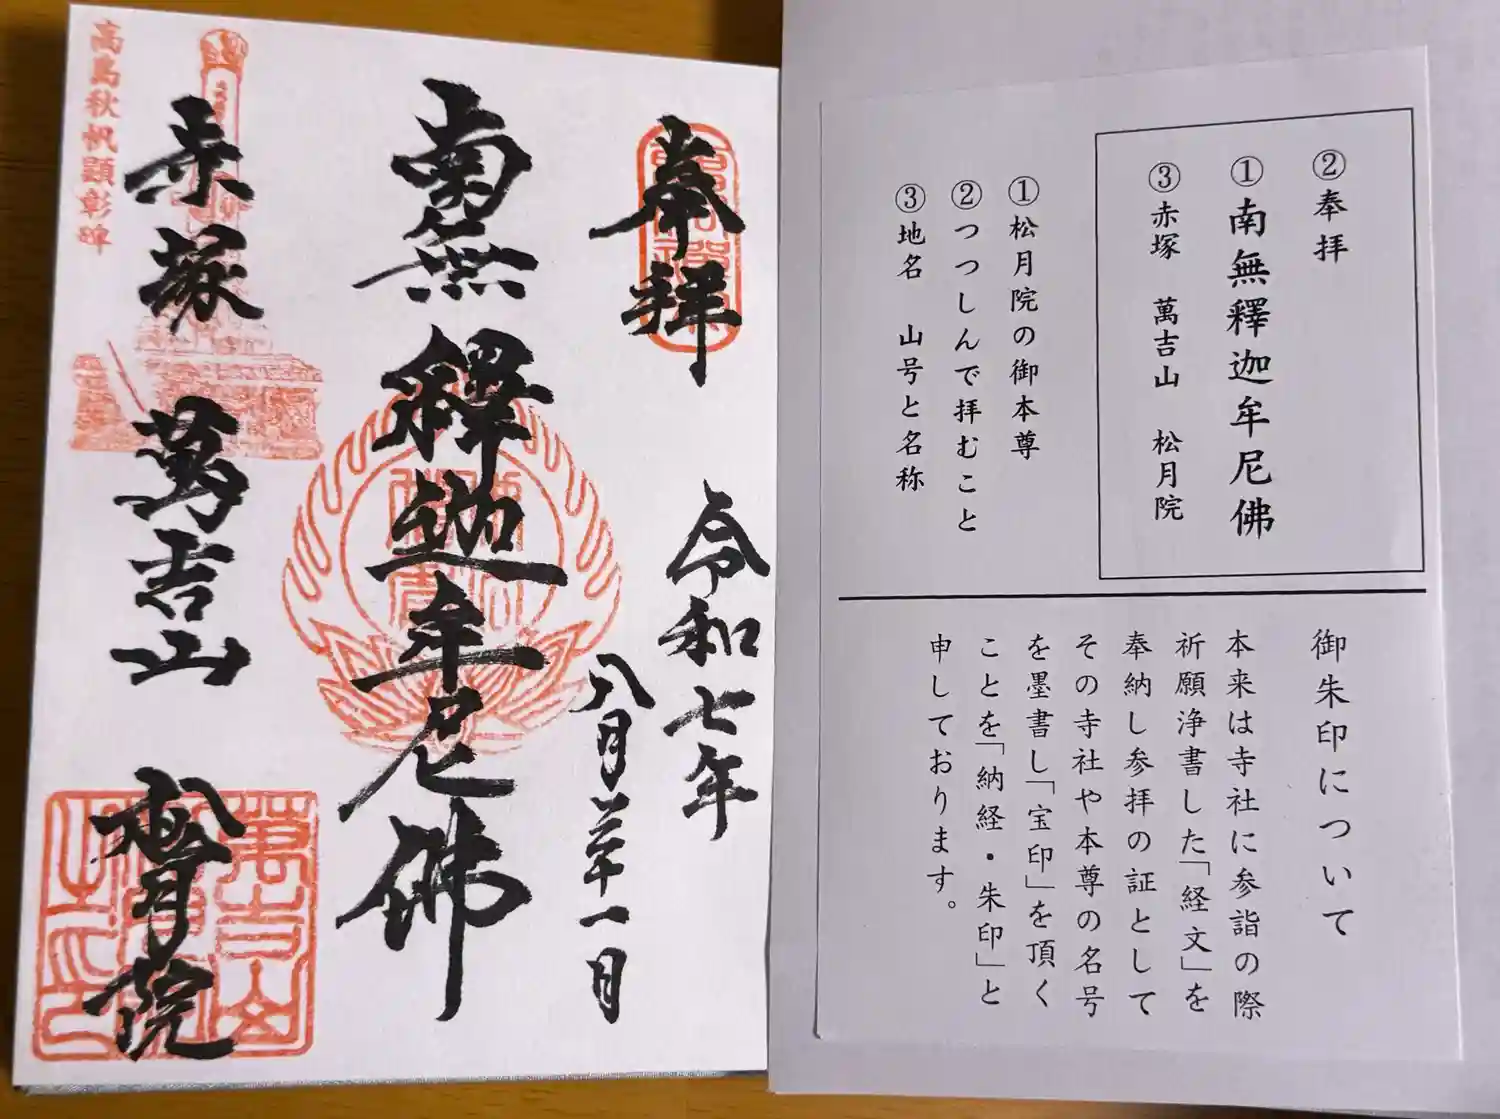 ②奉拝
①南無釋迦牟尼佛
③赤塚　萬吉山　松月院
①松月院の御本尊
②つつしんで拝むこと
③地名　山号と名称
御朱印について
本来は寺社に参詣の際
祈願浄書した「経文」を
奉納し参拝の証として
その寺社や本尊の名号
を墨書し「宝印」を頂く
ことを「納経・朱印」と
申しております。
奉拝
令和七年
八月三十一日
南無釋迦牟尼佛
赤塚　萬吉山　松月院
高島秋帆顕彰碑